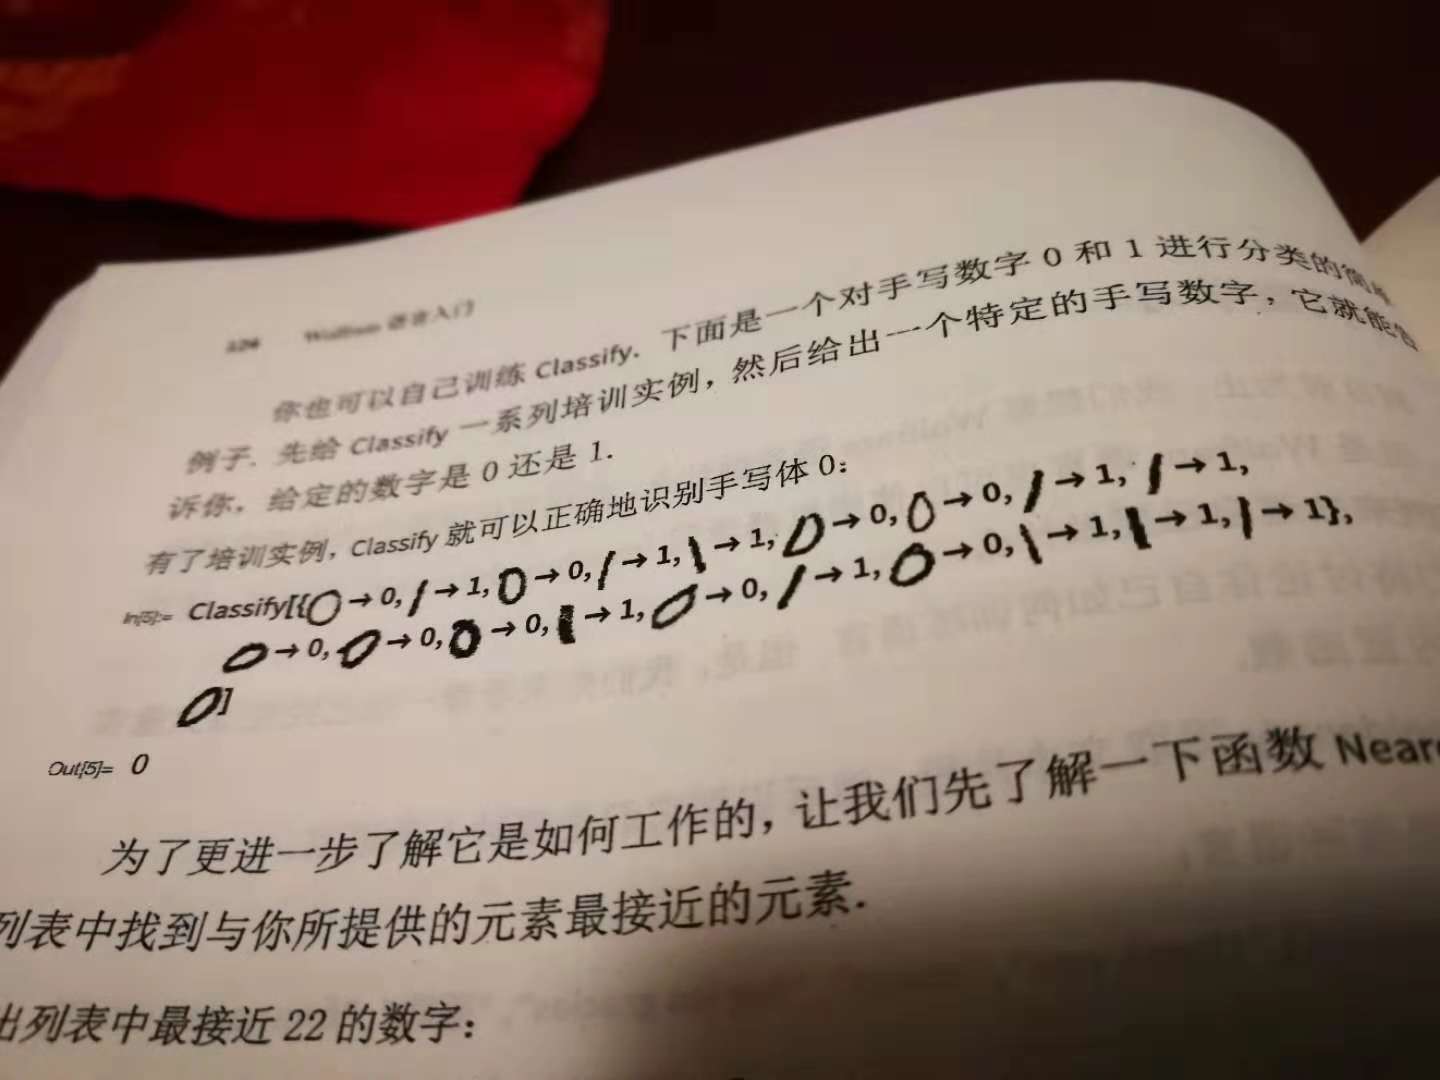 Wolfram 语言入门
你也可以自己训练 Classify. 下面是一个对手写数字 0 和 1 进行分类的简单
例子. 先给 Classify 一系列培训实例，然后给出一个特定的手写数字，它就能告
诉你，给定的数字是 0 还是 1.
有了培训实例，Classify 就可以正确地识别手写体 0：
In[5]:= Classify[{0 → 0, 1 → 1, 0 → 0, 1 → 1, 1 → 1, 0 → 0, 0 → 0, 1 → 1, 1 → 1,
0 → 0, 0 → 0, 0 → 0, 1 → 1, 0 → 0, 1 → 1, 0 → 0, 1 → 1, 1 → 1, 1 → 1},
0]
Out[5]= 0
为了更进一步了解它是如何工作的，让我们先了解一下函数 Neare
列表中找到与你所提供的元素最接近的元素.
出列表中最接近 22 的数字：